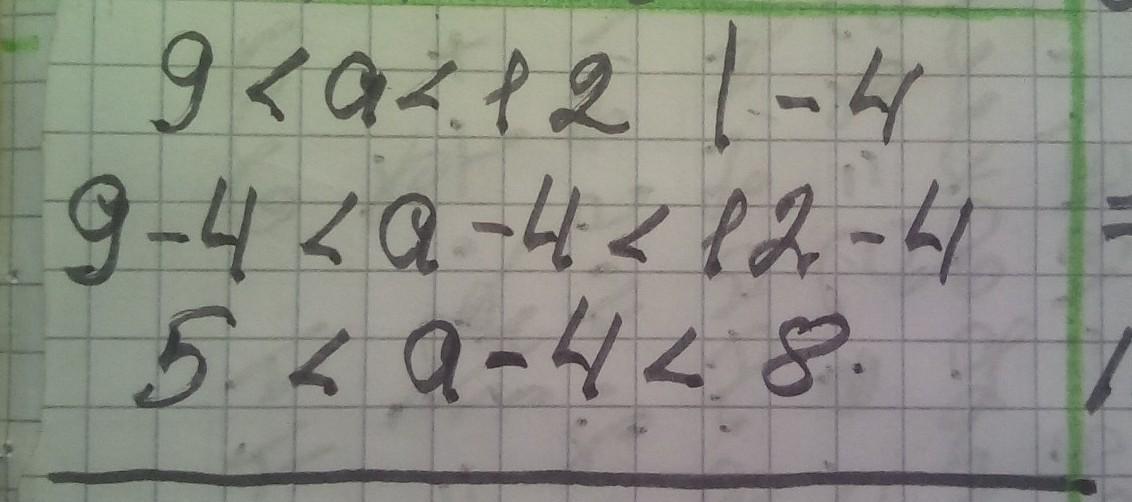 9 < a < 12 | - 4
9 - 4 < a - 4 < 12 - 4
5 < a - 4 < 8.